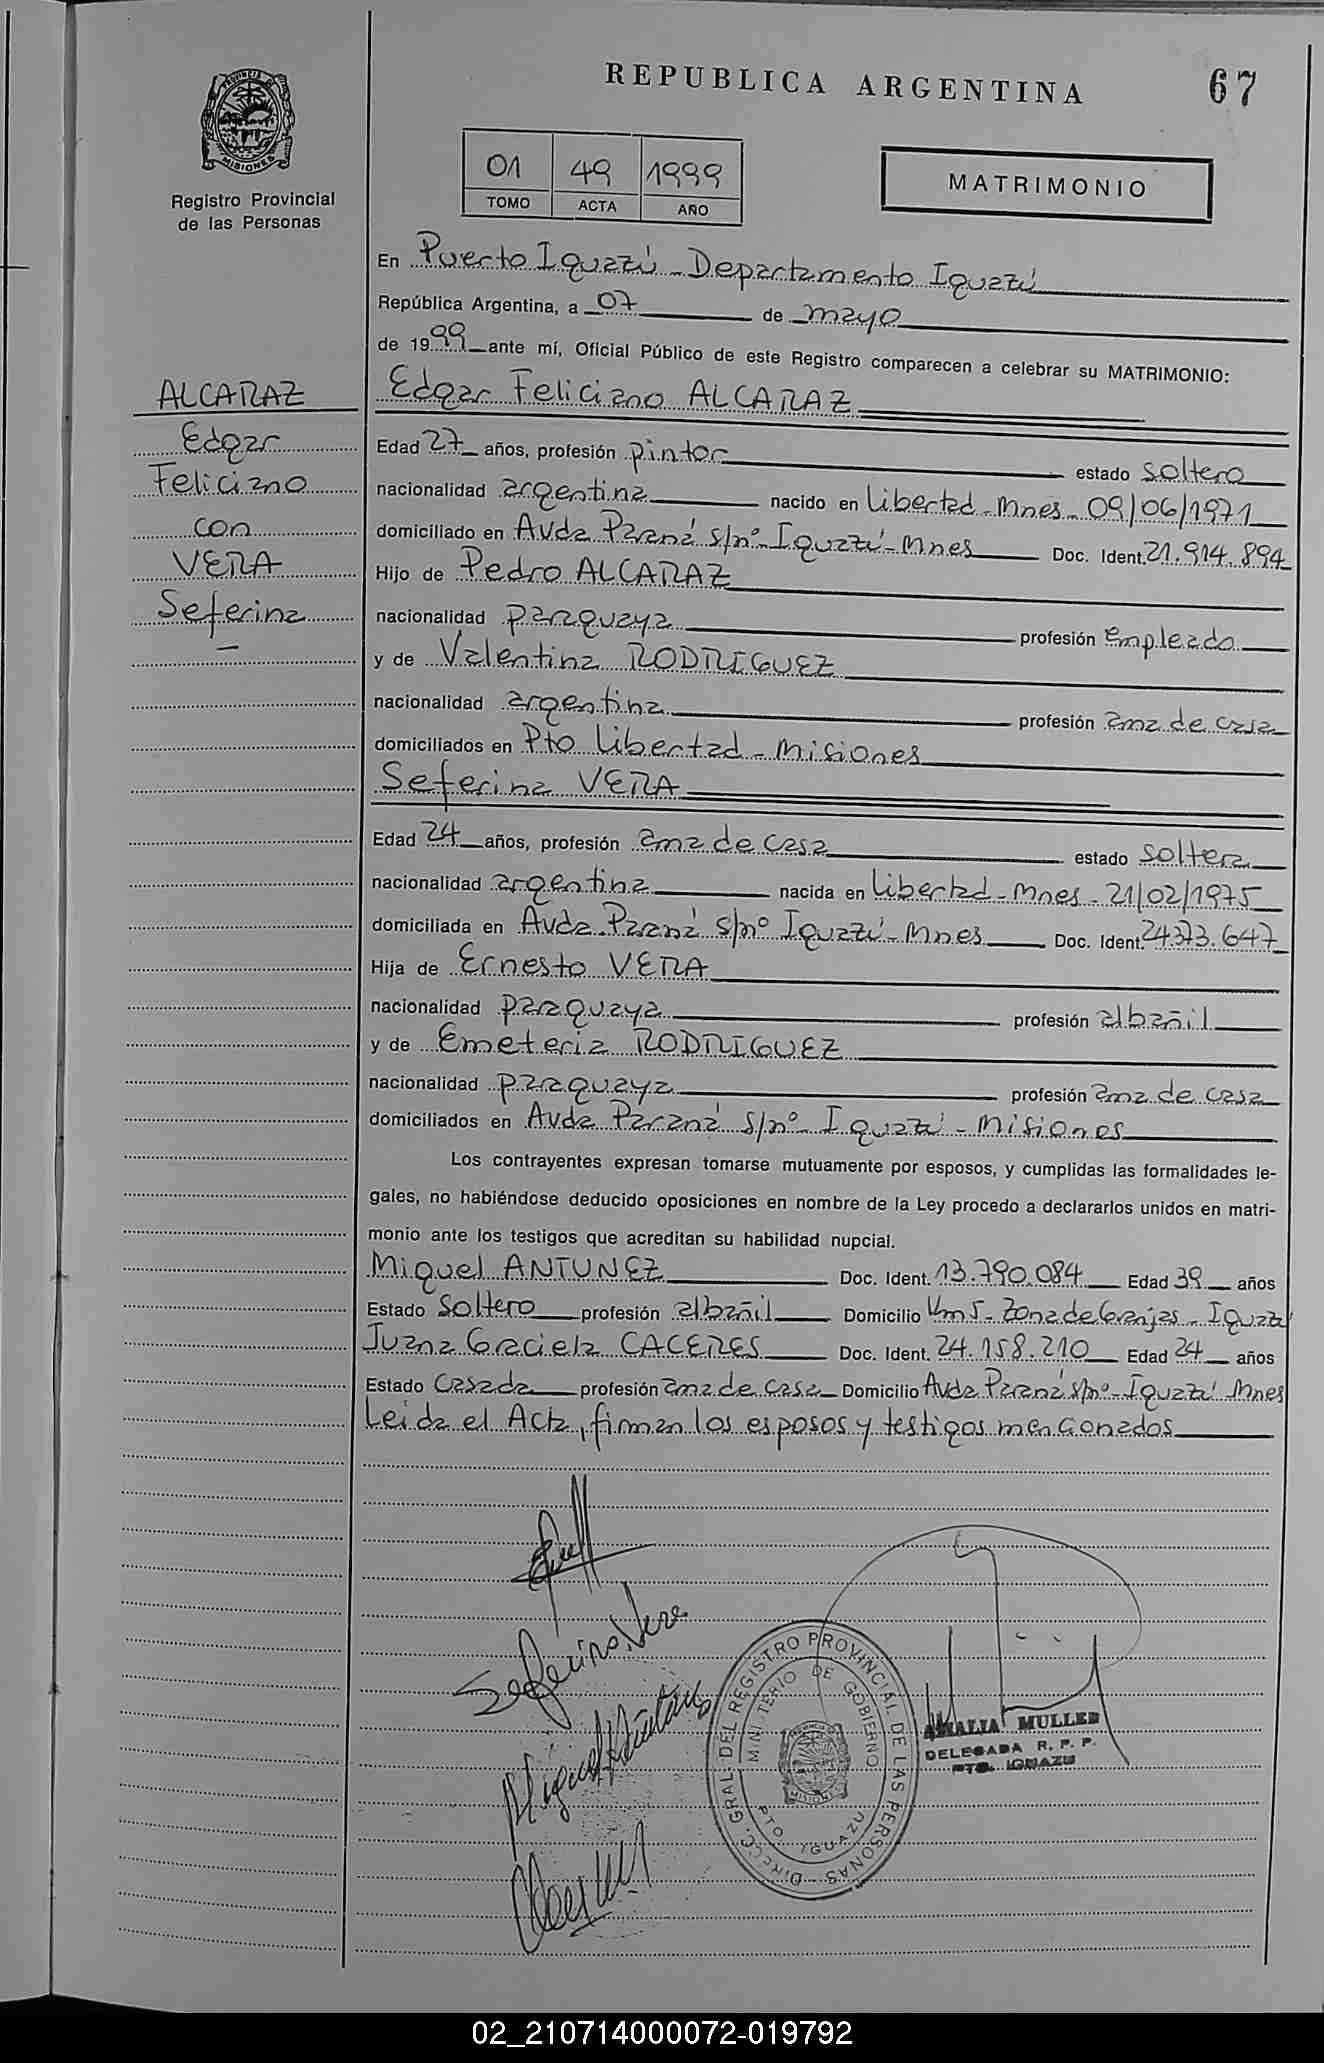 REPUBLICA ARGENTINA
67
PROVINCIA DE
MISIONES
Registro Provincial
de las Personas
01 49 1999
TOMO ACTA AÑO
MATRIMONIO
En Puerto Iguazú - Departamento Iguazú
República Argentina, a 07 de mayo
de 1999 ante mí, Oficial Público de este Registro comparecen a celebrar su MATRIMONIO:
ALCARAZ
Edgar
Feliciano
con
VERA
Seferina
Edgar Feliciano ALCARAZ
Edad 27 años, profesión pintor estado soltero
nacionalidad argentina nacido en Libertad - Mnes - 09/06/1971
domiciliado en Avda Paraná s/nº - Iguazú - Mnes Doc. Ident. 21.914.894
Hijo de Pedro ALCARAZ
nacionalidad paraguaya profesión empleado
y de Valentina RODRIGUEZ
nacionalidad argentina profesión ama de casa
domiciliados en Pto Libertad - Misiones
Seferina VERA
Edad 24 años, profesión ama de casa estado soltera
nacionalidad argentina nacida en Libertad - Mnes - 21/02/1975
domiciliada en Avda. Paraná s/nº Iguazú - Mnes Doc. Ident. 24.373.647
Hija de Ernesto VERA
nacionalidad paraguaya profesión albañil
y de Emeteria RODRIGUEZ
nacionalidad paraguaya profesión ama de casa
domiciliados en Avda Paraná s/nº - Iguazú - Misiones
Los contrayentes expresan tomarse mutuamente por esposos, y cumplidas las formalidades le-
gales, no habiéndose deducido oposiciones en nombre de la Ley procedo a declararlos unidos en matri-
monio ante los testigos que acreditan su habilidad nupcial.
Miguel ANTUNEZ Doc. Ident. 13.790.084 Edad 39 años
Estado soltero profesión albañil Domicilio Km 5 - Zona de Granjas - Iguazú
Juana Graciela CACERES Doc. Ident. 24.158.210 Edad 24 años
Estado casada profesión ama de casa Domicilio Avda Paraná s/nº - Iguazú Mnes
Leida el Acta, firman los esposos y testigos mencionados
Seferina Vera
DIRECC. GRAL DEL REGISTRO PROVINCIAL DE LAS PERSONAS
MINISTERIO DE GOBIERNO
MISIONES
PTO IGUAZU
AMALIA MULLER
DELEGADA R. P. P.
PTO. IGUAZU
02_210714000072-019792